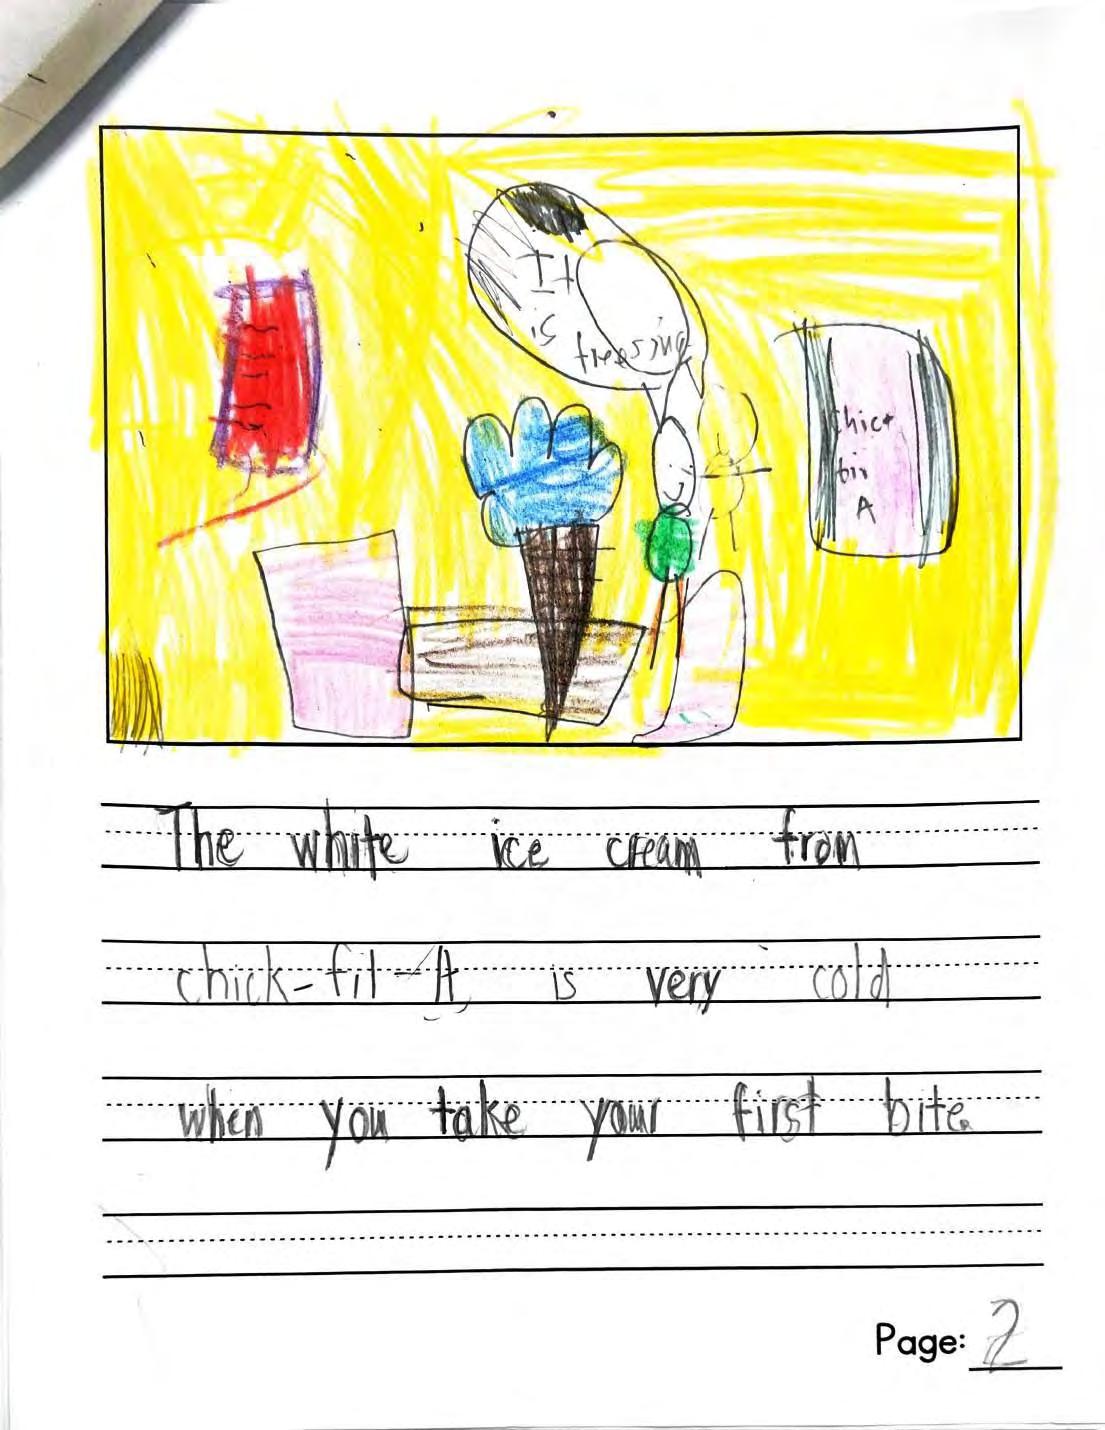 It
is
freesing
chict
fir
A
The white ice cream from
chick-fil-A is very cold
when you take your first bite.
Page: 2